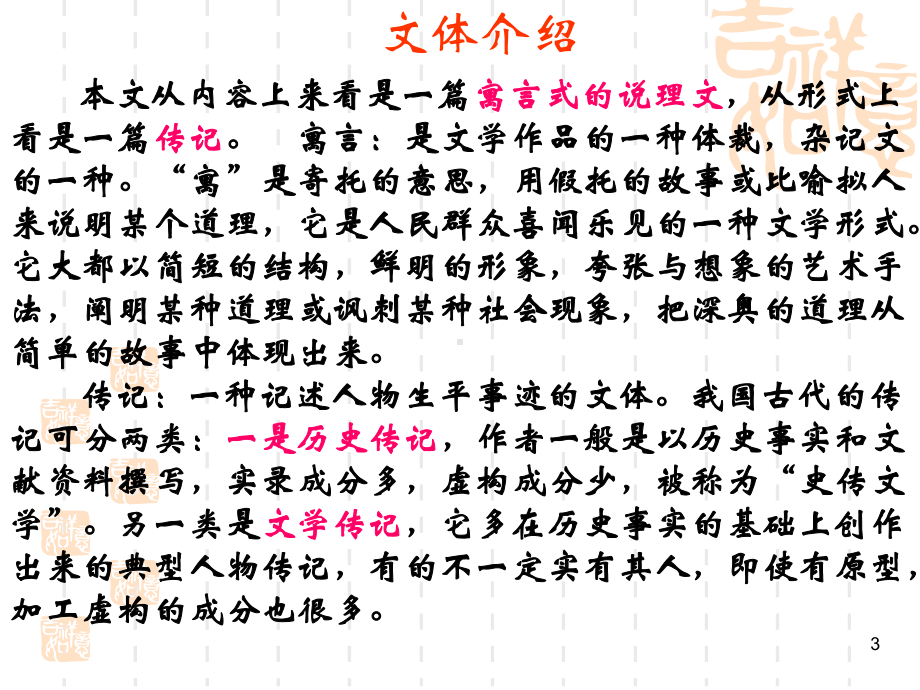 文体介绍
本文从内容上来看是一篇寓言式的说理文，从形式上
看是一篇传记。 寓言：是文学作品的一种体裁，杂记文
的一种。“寓”是寄托的意思，用假托的故事或比喻拟人
来说明某个道理，它是人民群众喜闻乐见的一种文学形式。
它大都以简短的结构，鲜明的形象，夸张与想象的艺术手
法，阐明某种道理或讽刺某种社会现象，把深奥的道理从
简单的故事中体现出来。
传记：一种记述人物生平事迹的文体。我国古代的传
记可分两类：一是历史传记，作者一般是以历史事实和文
献资料撰写，实录成分多，虚构成分少，被称为“史传文
学”。另一类是文学传记，它多在历史事实的基础上创作
出来的典型人物传记，有的不一定实有其人，即使有原型，
加工虚构的成分也很多。
吉祥如意
吉祥如意
吉祥如意
吉祥如意
吉祥如意
吉祥如意
吉祥如意
3